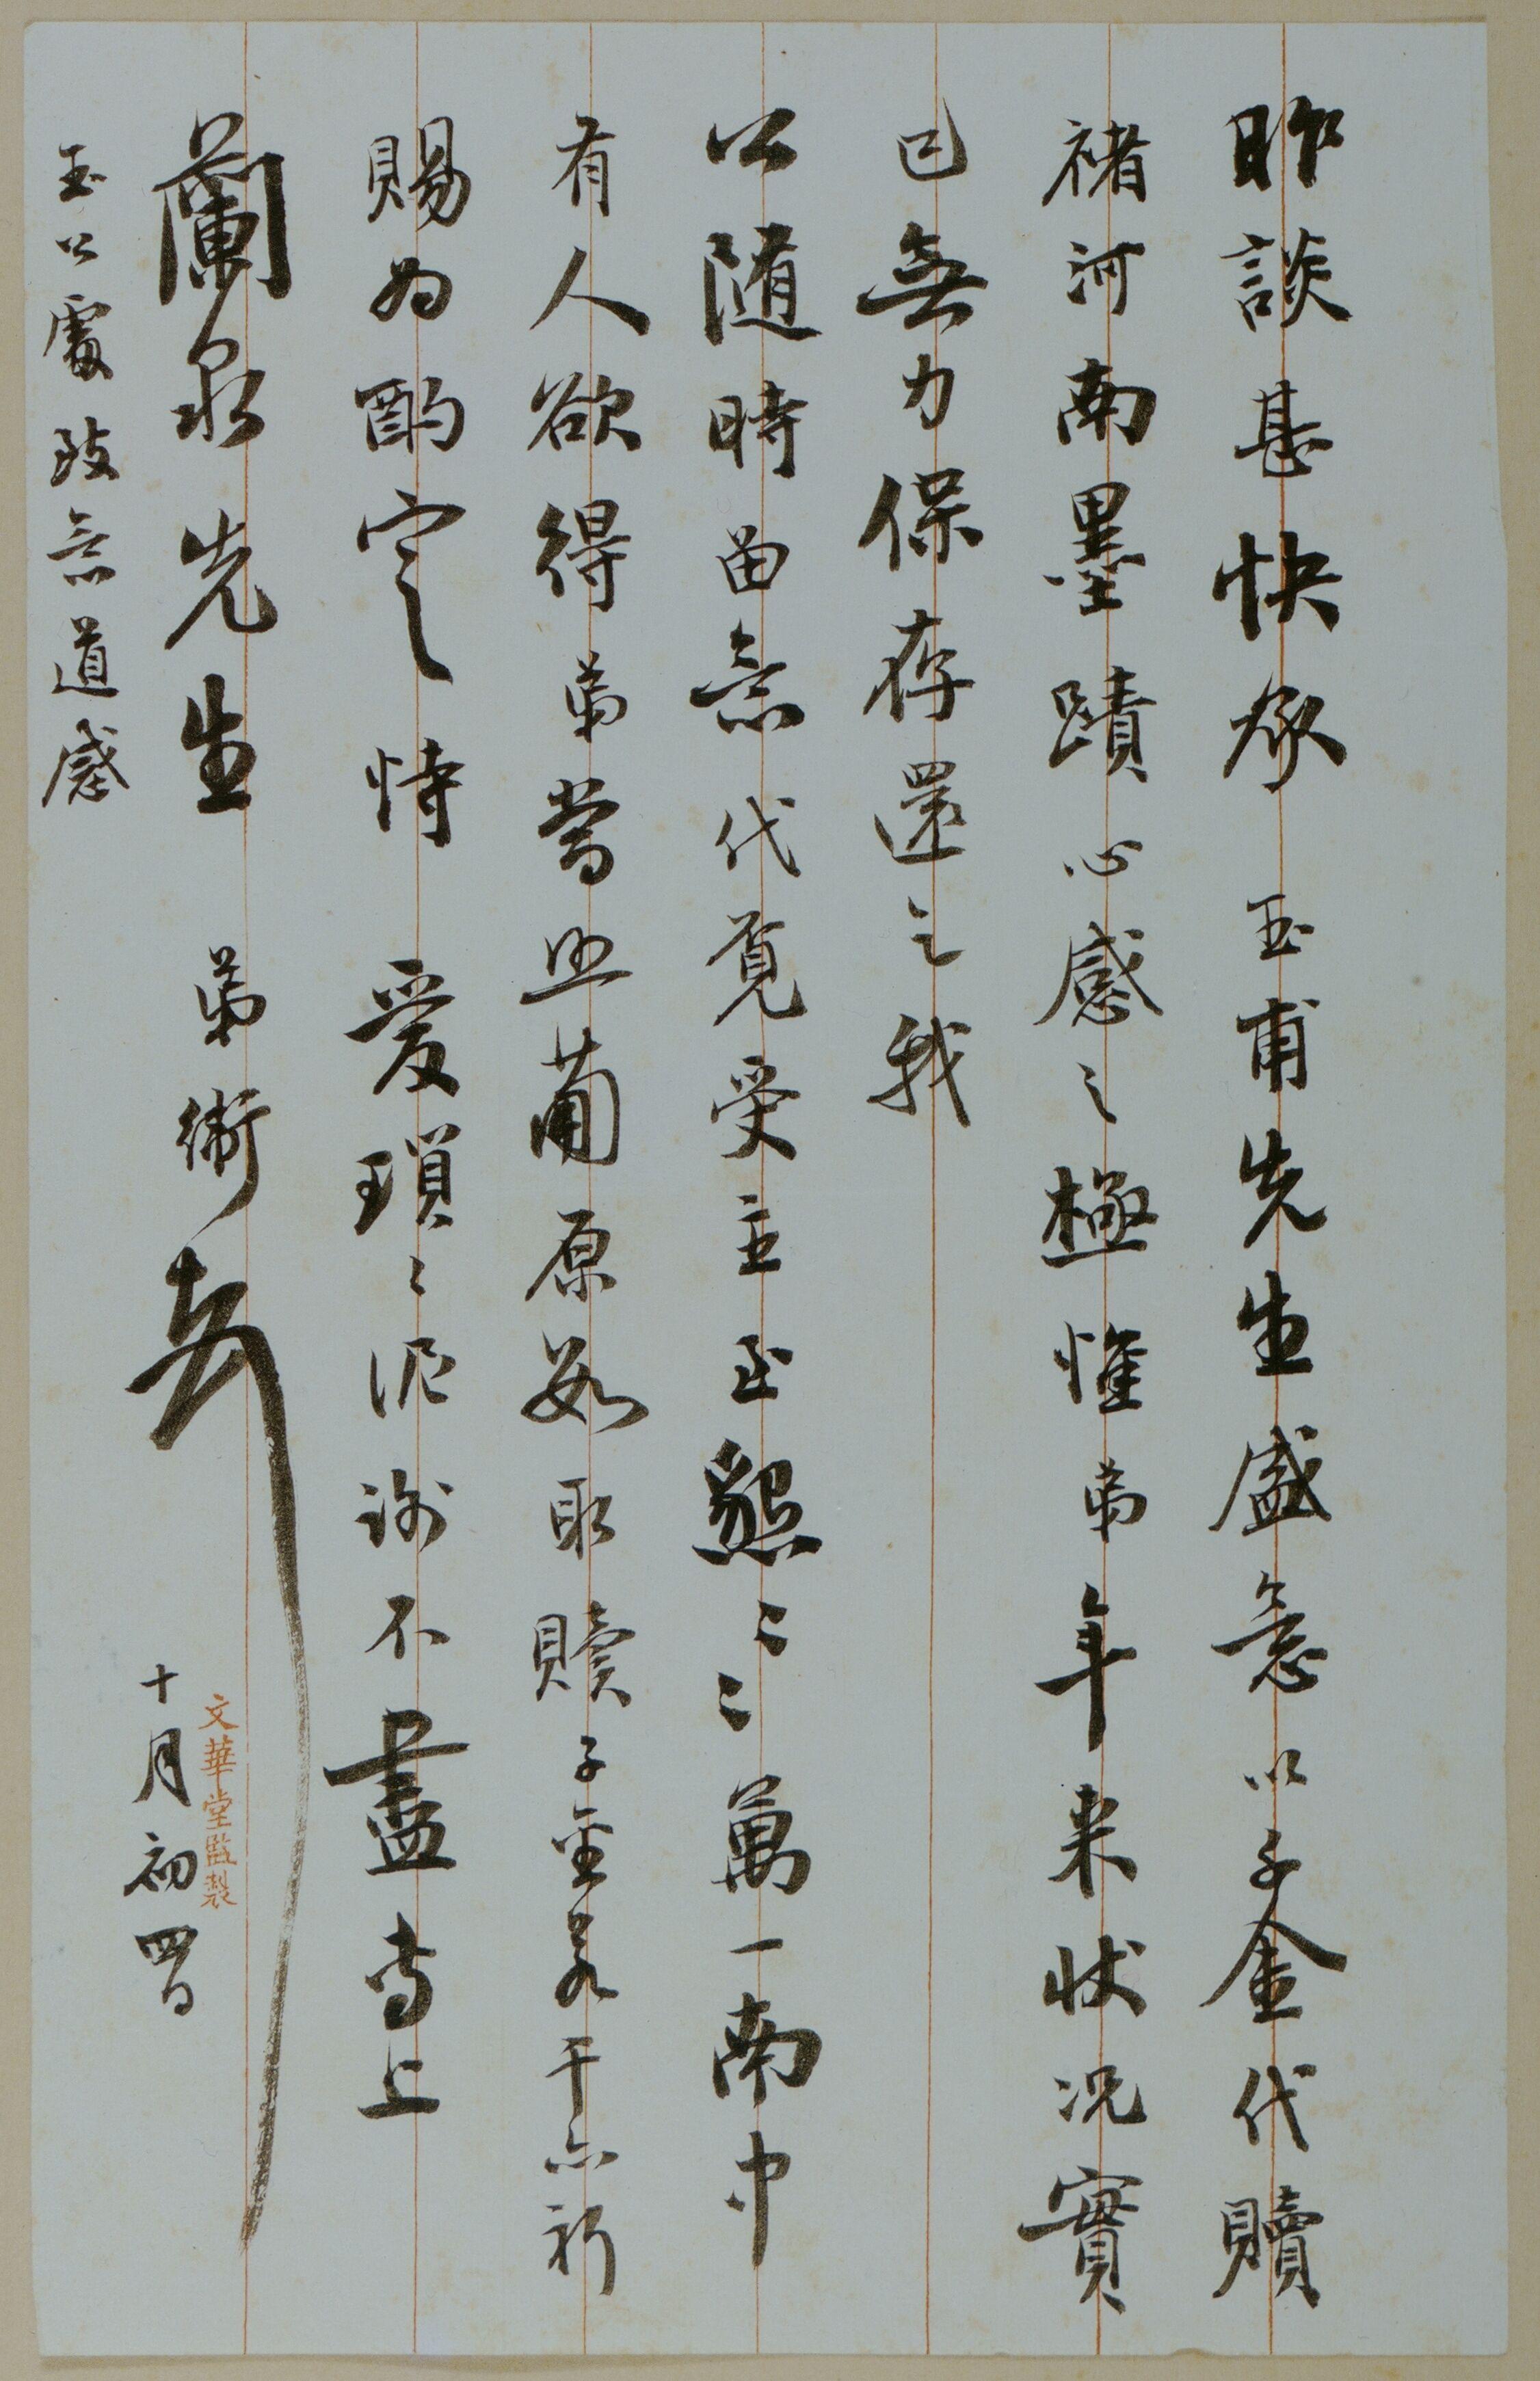 昨談甚快承　玉甫先生盛意以千金代贖
褚河南墨蹟心感之極惟弟年来状况實
已無力保存還之我
公随時留意代覓受主至懇〻〻萬一南中
有人欲得弟當照葡原数取贖子金若干亦祈
賜為酌定恃　愛瑣〻泥謝不盡専上
蘭泉先生　弟衛
玉公處致意道感
十月初四日
文華堂監製